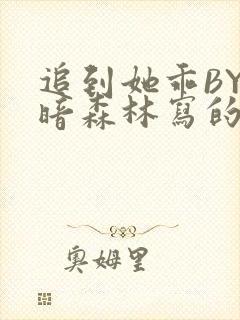 追到她乖BY
暗森林寫的
奧姆里